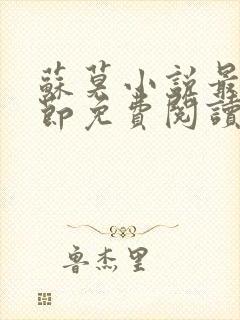 蘇莫小說最
節免費閱讀
魯杰里